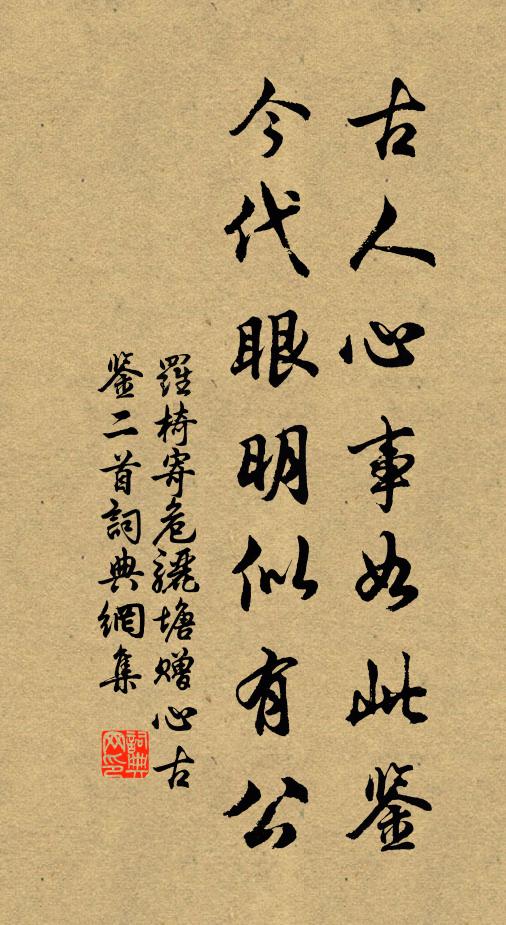 古人心事如此鉴
今代眼明似有公
羅椅寄危驪塘贈心古
鉴二首詞典網集
詞典网印